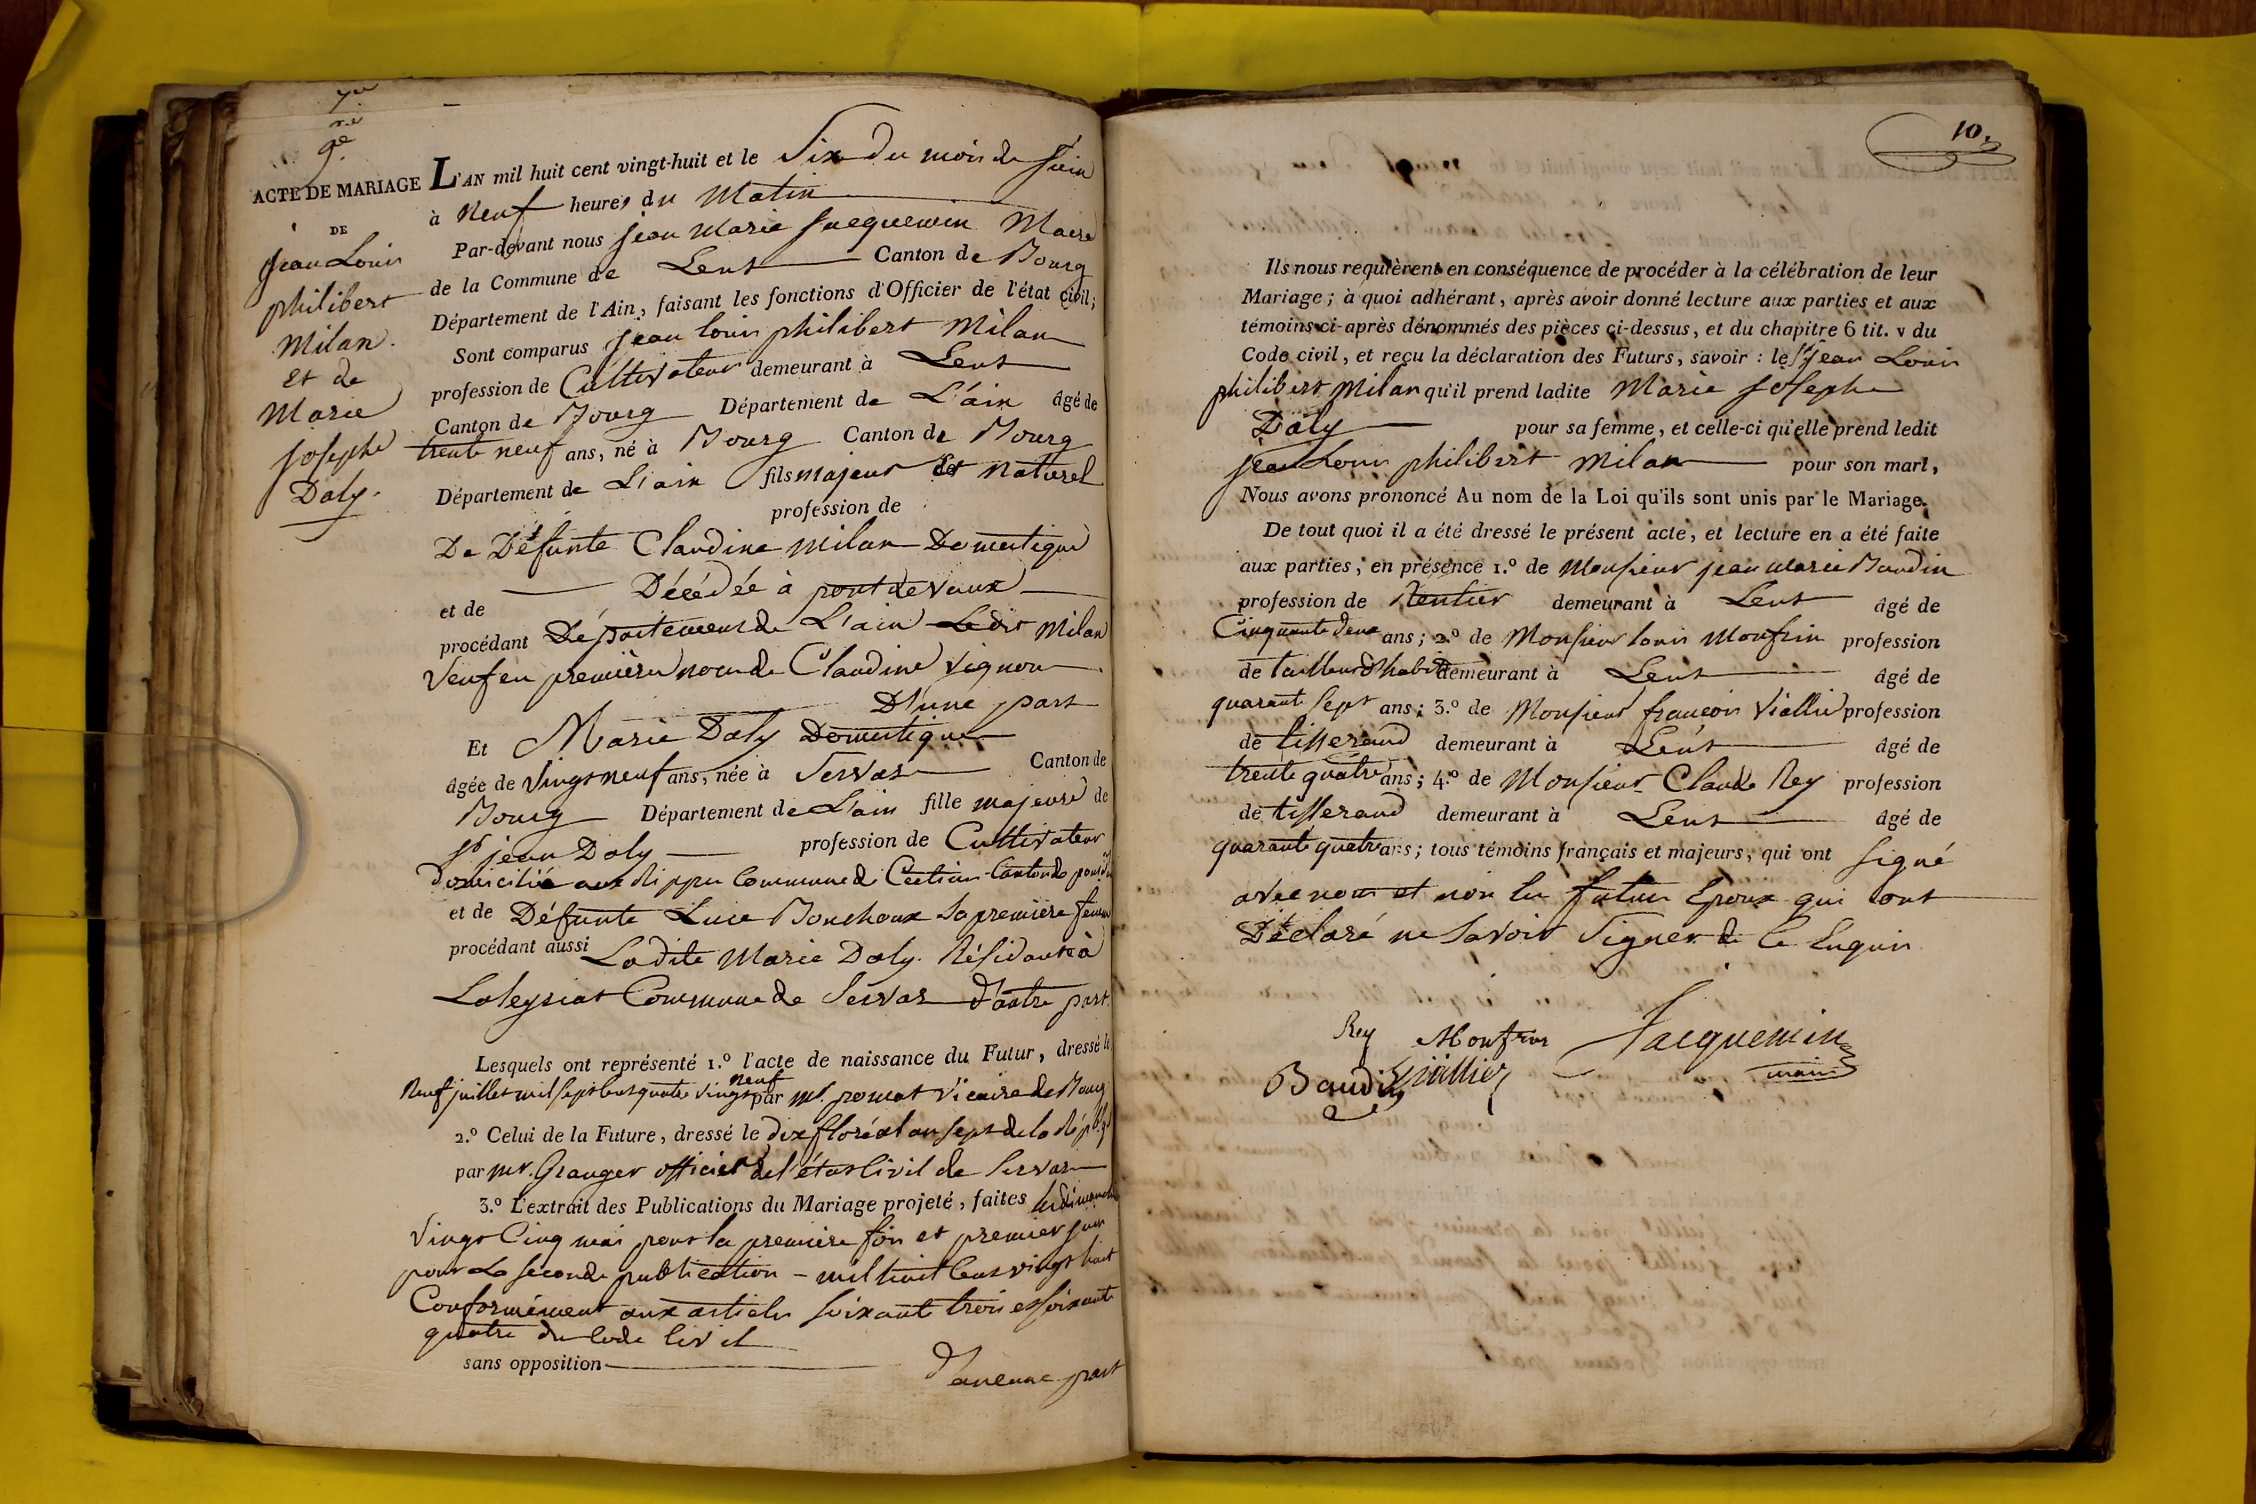 9e.
ACTE DE MARIAGE
DE
jean Louis
philibert
Milan.
et de
Marie
Josephe
Daly.
L'AN mil huit cent vingt-huit et le Six du mois de Juin
à Neuf heures du Matin
Par-devant nous jean Marie Jacquemin Maire
de la Commune de Lent Canton de Bourg
Département de l'Ain, faisant les fonctions d'Officier de l'état civil;
Sont comparus jean louis philibert Milan
profession de Cultivateur demeurant à Lent
Canton de Bourg Département de L'ain âgé de
trente neuf ans, né à Bourg Canton de Bourg
Département de L'ain fils majeur et naturel
profession de
De Défunte Claudine Milan Domestique
et de Décédée à pont de vaux
procédant Département de L'ain Ledit Milan
Veuf en premières noces de Claudine Vignon
D'une part
Et Marie Daly Domestique
âgée de Vingt neuf ans, née à Servas Canton de
Bourg Département de L'ain fille majeure de
Sr jean Daly profession de Cultivateur
Domicilié aux Commune de Canton de
et de Défunte Luce Bouchoux Sa première femme
procédant aussi Ladite Marie Daly Résidante à
Laleyriat Commune de Servas D'autre part.
Lesquels ont représenté 1.º l'acte de naissance du Futur, dressé le
neuf
Neuf juillet mil sept cent quatre vingt par mr. vicaire de Bourg
2.º Celui de la Future, dressé le dix floréal an sept de la
par mr. Granger officier de l'état Civil de Servas
3.º L'extrait des Publications du Mariage projeté, faites les dimanches
Vingt Cinq mai pour la première fois et premier juin
pour La seconde publication - mil huit Cent vingt huit
Conformément aux articles soixante trois et soixante
quatre du Code Civil
sans opposition
d'aucune part
10
Ils nous requièrent en conséquence de procéder à la célébration de leur
Mariage; à quoi adhérant, après avoir donné lecture aux parties et aux
témoins ci-après dénommés des pièces ci-dessus, et du chapitre 6 tit. v du
Code civil, et reçu la déclaration des Futurs, savoir: le Sr jean Louis
philibert Milan qu'il prend ladite Marie Josephe
Daly pour sa femme, et celle-ci qu'elle prend ledit
jean Louis philibert Milan pour son mari,
Nous avons prononcé Au nom de la Loi qu'ils sont unis par le Mariage.
De tout quoi il a été dressé le présent acte, et lecture en a été faite
aux parties, en présence 1.º de Monsieur jean marie Baudin
profession de Rentier demeurant à Lent âgé de
Cinquante deux ans; 2.º de Monsieur louis Monfrin profession
de tailleur d'habits demeurant à Lent âgé de
quarante Sept ans; 3.º de Monsieur françois Viallier profession
de tisserand demeurant à Lent âgé de
trente quatre ans; 4.º de Monsieur Claude Rey profession
de tisserand demeurant à Lent âgé de
quarante quatre ans; tous témoins français et majeurs, qui ont Signé
avec nous et non les futurs époux qui ont
Déclaré ne Savoir Signer de Ce Enquis
Rey Monfrin Jacquemin
Baudin Viallier maire